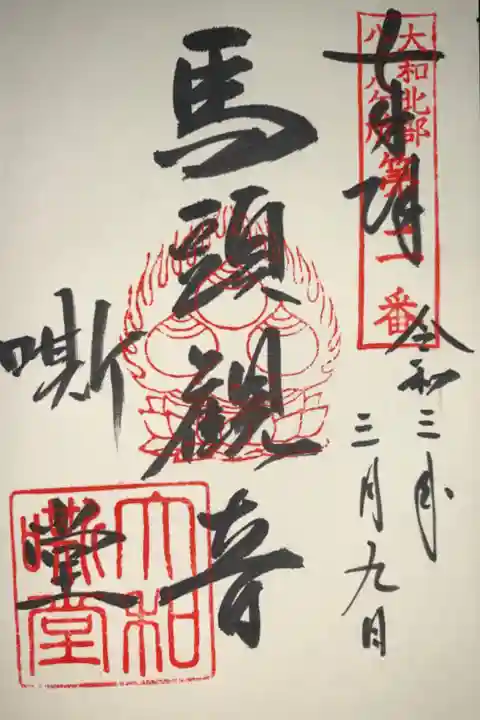 大和北部
八十八ヶ所第二番
令和三年
三月九日
馬頭観音
嘶堂
大和
嘶堂